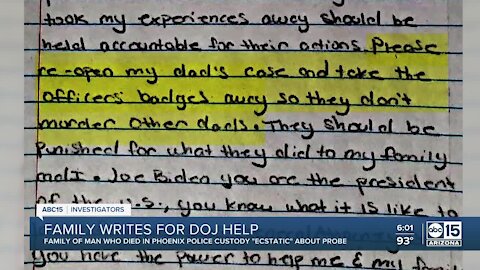 took my experiences away should be
held accountable for their actions. Please
re-open my dad's case and take the
officers' badges away so they don't
murder other dads. They should be
punished for what they did to my family
and I. Joe Biden you are the president
of the U.S., you know what it is like to
you have the power to help me & my
ABC15 INVESTIGATORS
FAMILY WRITES FOR DOJ HELP
FAMILY OF MAN WHO DIED IN PHOENIX POLICE CUSTODY "ECSTATIC" ABOUT PROBE
6:01
93°
abc 15
ARIZONA